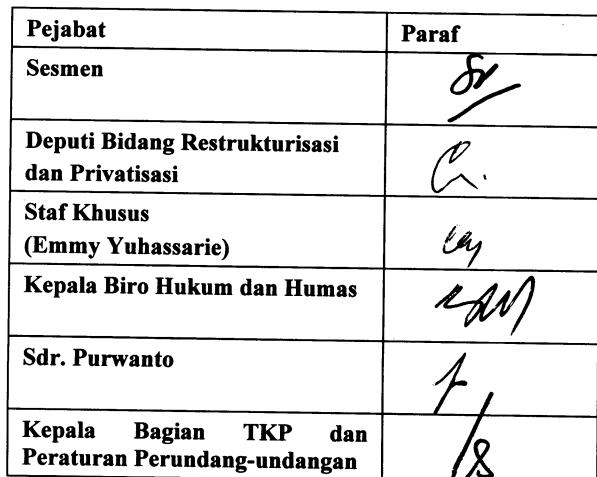 Pejabat Paraf
Sesmen
Deputi Bidang Restrukturisasi
dan Privatisasi
Staf Khusus
(Emmy Yuhassarie)
Kepala Biro Hukum dan Humas
Sdr. Purwanto
Kepala Bagian TKP dan
Peraturan Perundang-undangan